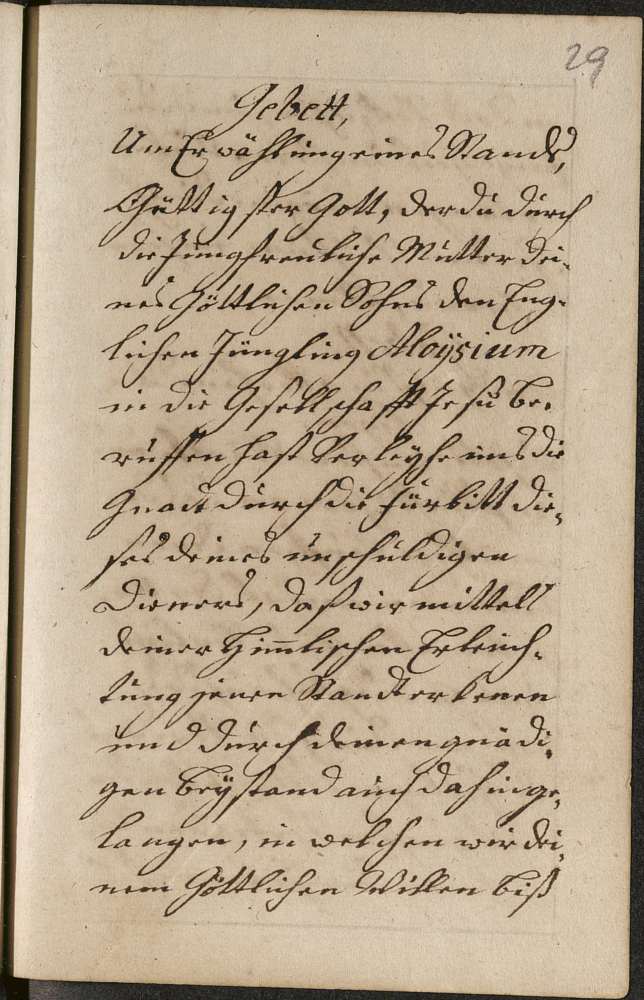 29
Gebett,
Um Erwählung eines Stands,
Güttigster Gott, der du durch
die Jungfreuliche Mutter dei-
nes Göttlichen Sohns den Eng-
lichen Jüngling Aloÿsium
in die Gesellschafft Jesu be-
ruffen hast Verleyhe uns die
Gnad durch die Fürbitt die-
ses deines unschuldigen
Dieners, daß wir mittelst
deiner Himlischen Erleuch-
tung jenen Standt erkenen
und durch deinen gnädi-
gen beÿstand auch dahin ge-
langen, in welchen wir dei-
nem Göttlichen Willen biß